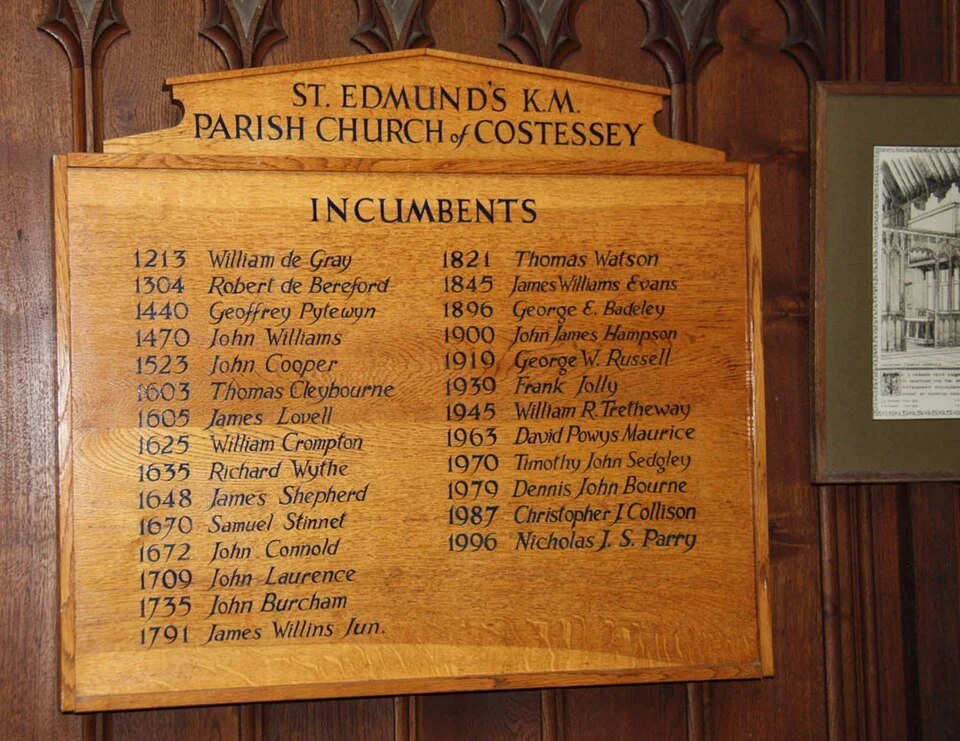 ST. EDMUND'S K.M.
PARISH CHURCH of COSTESSEY
INCUMBENTS
1213 William de Gray
1304 Robert de Bereford
1440 Geoffrey Pytewyn
1470 John Williams
1523 John Cooper
1603 Thomas Cleybourne
1605 James Lovell
1625 William Crompton
1635 Richard Wythe
1648 James Shepherd
1670 Samuel Stinnet
1672 John Connold
1709 John Laurence
1735 John Burcham
1791 James Willins Jun.
1821 Thomas Watson
1845 James Williams Evans
1896 George E. Badeley
1900 John James Hampson
1919 George W. Russell
1939 Frank Jolly
1945 William R. Tretheway
1963 David Powys Maurice
1970 Timothy John Sedgley
1979 Dennis John Bourne
1987 Christopher J. Collison
1996 Nicholas J. S. Parry